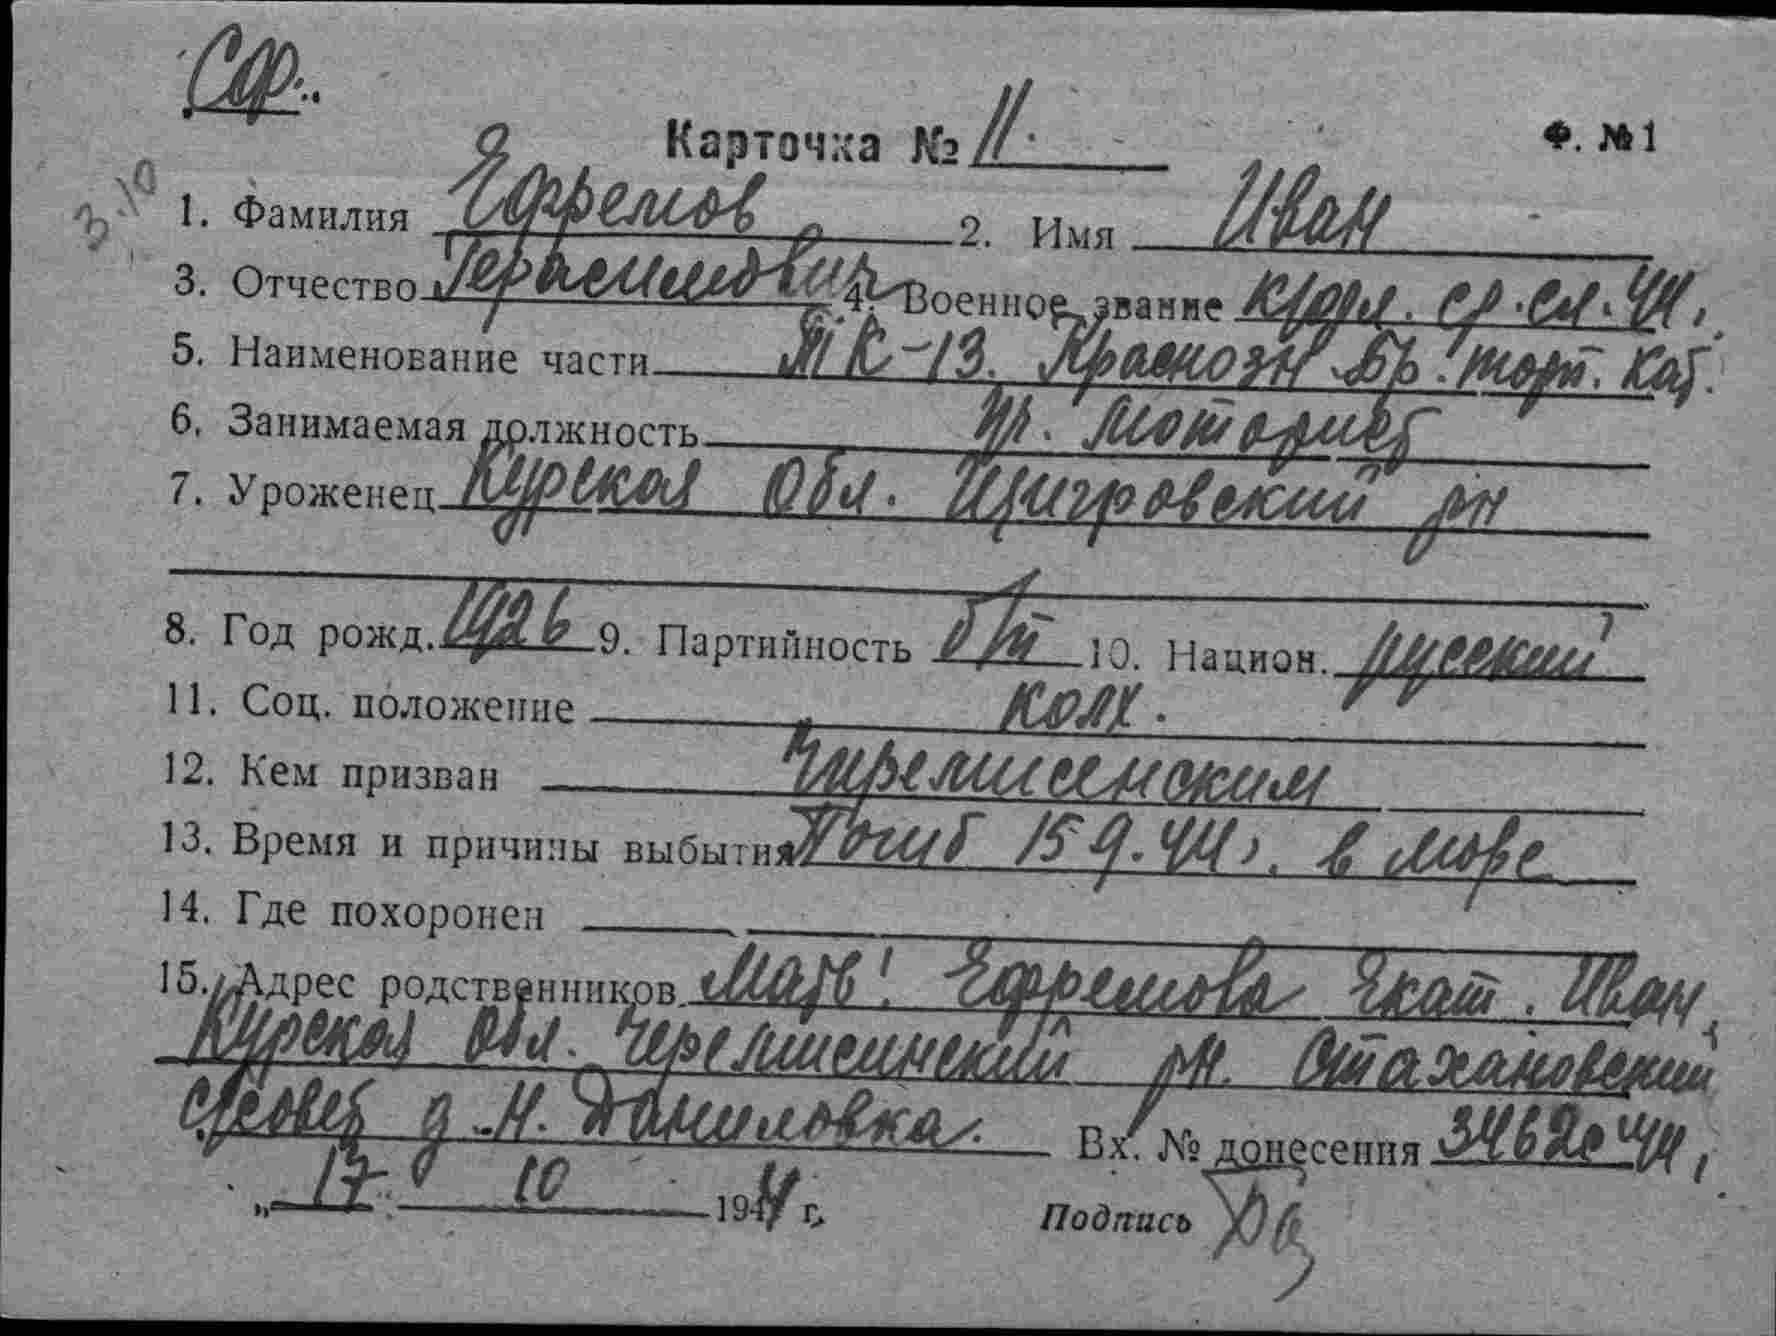 Карточка № 11. Ф. №1
3.10
1. Фамилия Ефремов 2. Имя Иван
3. Отчество Герасимович 4. Военное звание кр/фл. ср. сл. 44г.
5. Наименование части ТК-13. Краснозн Бр. торп. кат.
6. Занимаемая должность пр. моторист
7. Уроженец Курская Обл. Щигровский рн
8. Год рожд. 1926 9. Партийность б/п 10. Национ. русский
11. Соц. положение колх.
12. Кем призван Чиремисенским
13. Время и причины выбытия Погиб 15 9.44г. в море
14. Где похоронен
15. Адрес родственников Мать: Ефремова Екат. Иван,
Курская Обл. Черемисинский рн. Стахановский
с/совет д. Н. Даниловка. Вх. № донесения 3462с 44г
„ 17 10 1944 г.
Подпись